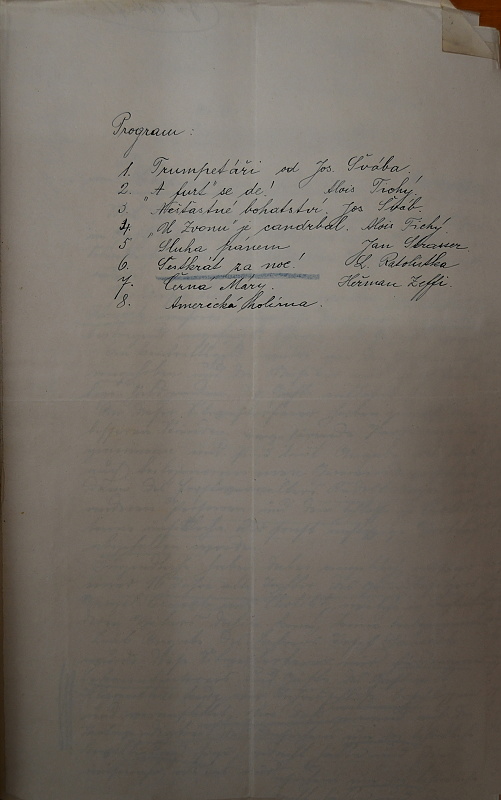 Program:
1. Trumpetáři od Jos. Švába.
2. "A furt" se de! Alois Tichý.
3. "Nešťastné bohatství. Jos Šváb
4. "U Zvonů" je candrbál. Alois Tichý.
5 Sluha pánem Jan Strasser.
6. Šestkrát za noc! L. Ratolistka
7. Černá Mary. Heřman Zeffi.
8. Americká